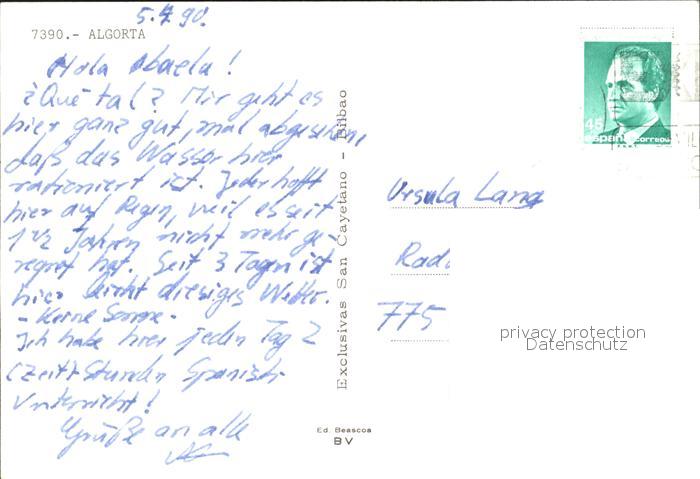 5.4.90.
7390.- ALGORTA
Hola Abuela!
¿Qué tal? Mir geht es
hier ganz gut, mal abgesehen,
daß das Wasser hier
rationiert ist. Jeder hofft
hier auf Regen, weil es seit
1 1/2 Jahren nicht mehr ge-
regnet hat. Seit 3 Tagen ist
hier leicht diesiges Wetter.
- Keine Sonne -
Ich habe hier jeden Tag 2
(Zeit)-Stunden Spanisch-
Unterricht!
Grüße an alle
Exclusivas San Cayetano - Bilbao
Ed. Beascoa
BV
45
España correos
Ursula Lang
Rado
775
privacy protection
Datenschutz